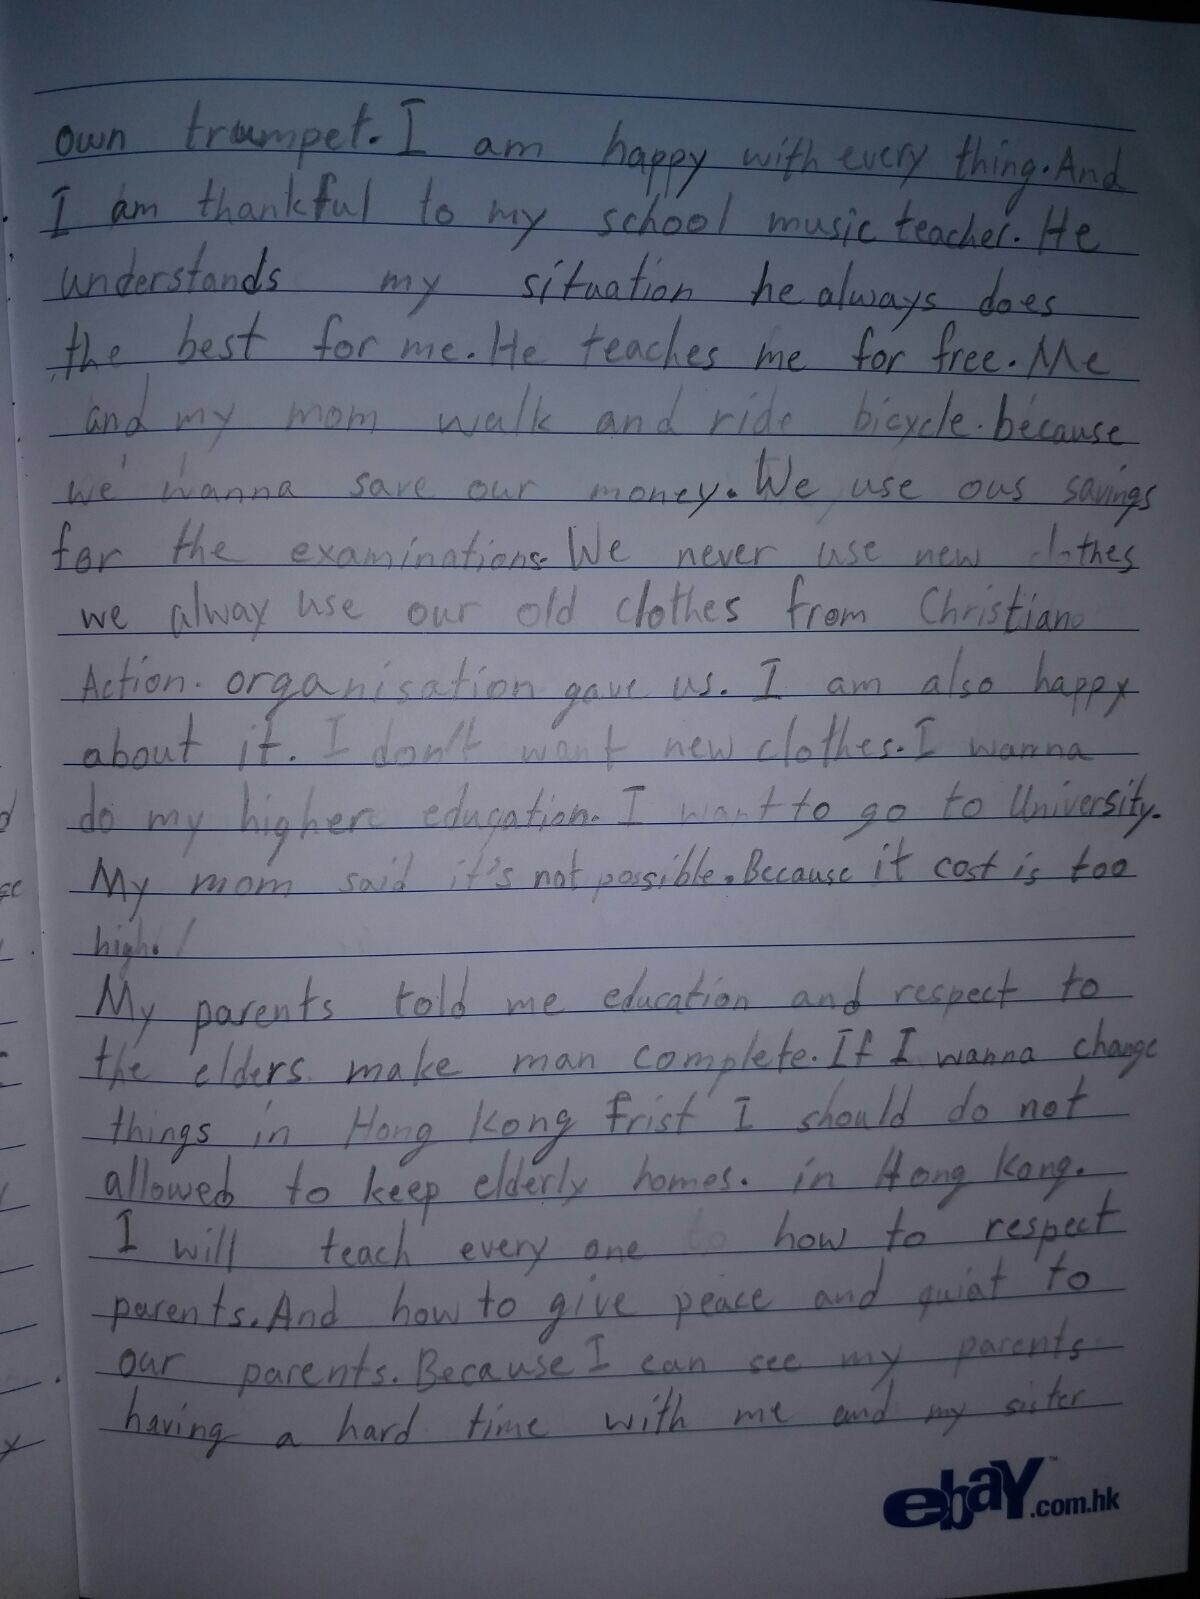 own trumpet. I am happy with every thing. And
I am thankful to my school music teacher. He
understands my situation he always does
the best for me. He teaches me for free. Me
and my mom walk and ride bicycle. because
we wanna save our money. We use ous savings
for the examinations. We never use new clothes
we alway use our old clothes from Christian
Action. organisation gave us. I am also happy
about it. I don't want new clothes. I wanna
do my higher education. I want to go to University.
My mom said it's not possible. Because it cost is too
high.
My parents told me education and respect to
the elders make man complete. If I wanna change
things in Hong Kong frist I should do not
allowed to keep elderly homes. in Hong Kong.
I will teach every one how to respect
parents. And how to give peace and quiat to
our parents. Because I can see my parents
having a hard time with me and my sister
ebay.com.hk